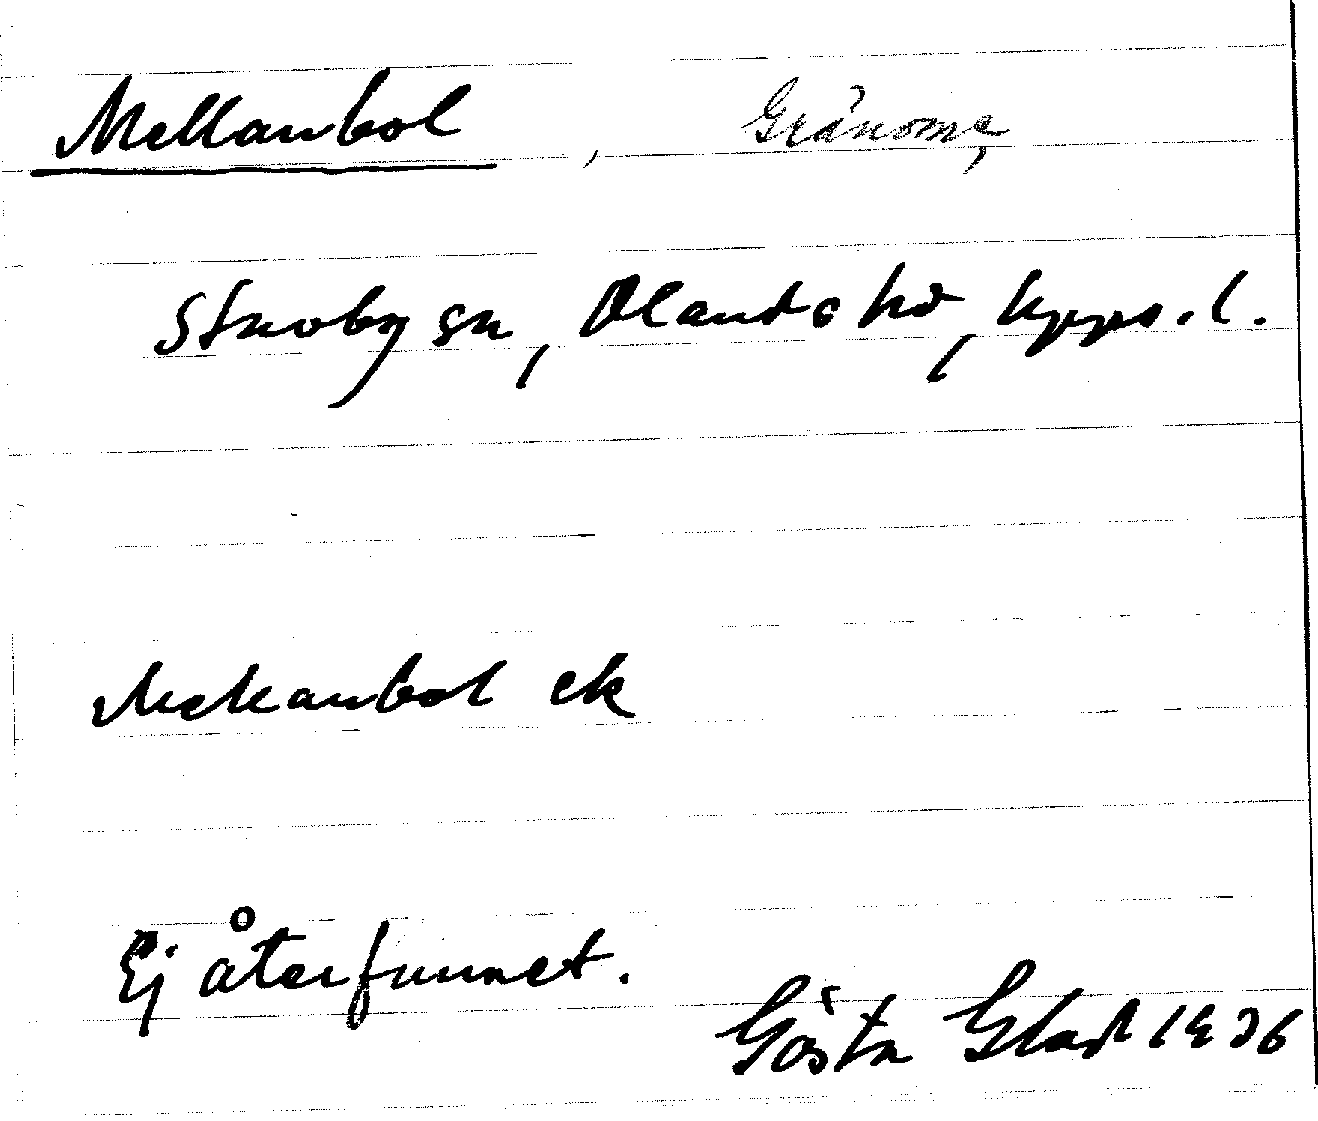 Mellanbol, Gränome,
Stavby sn, Olands hd, Upps. l.
Mellanbol ek
Ej återfunnet.
Gösta Glad 1936